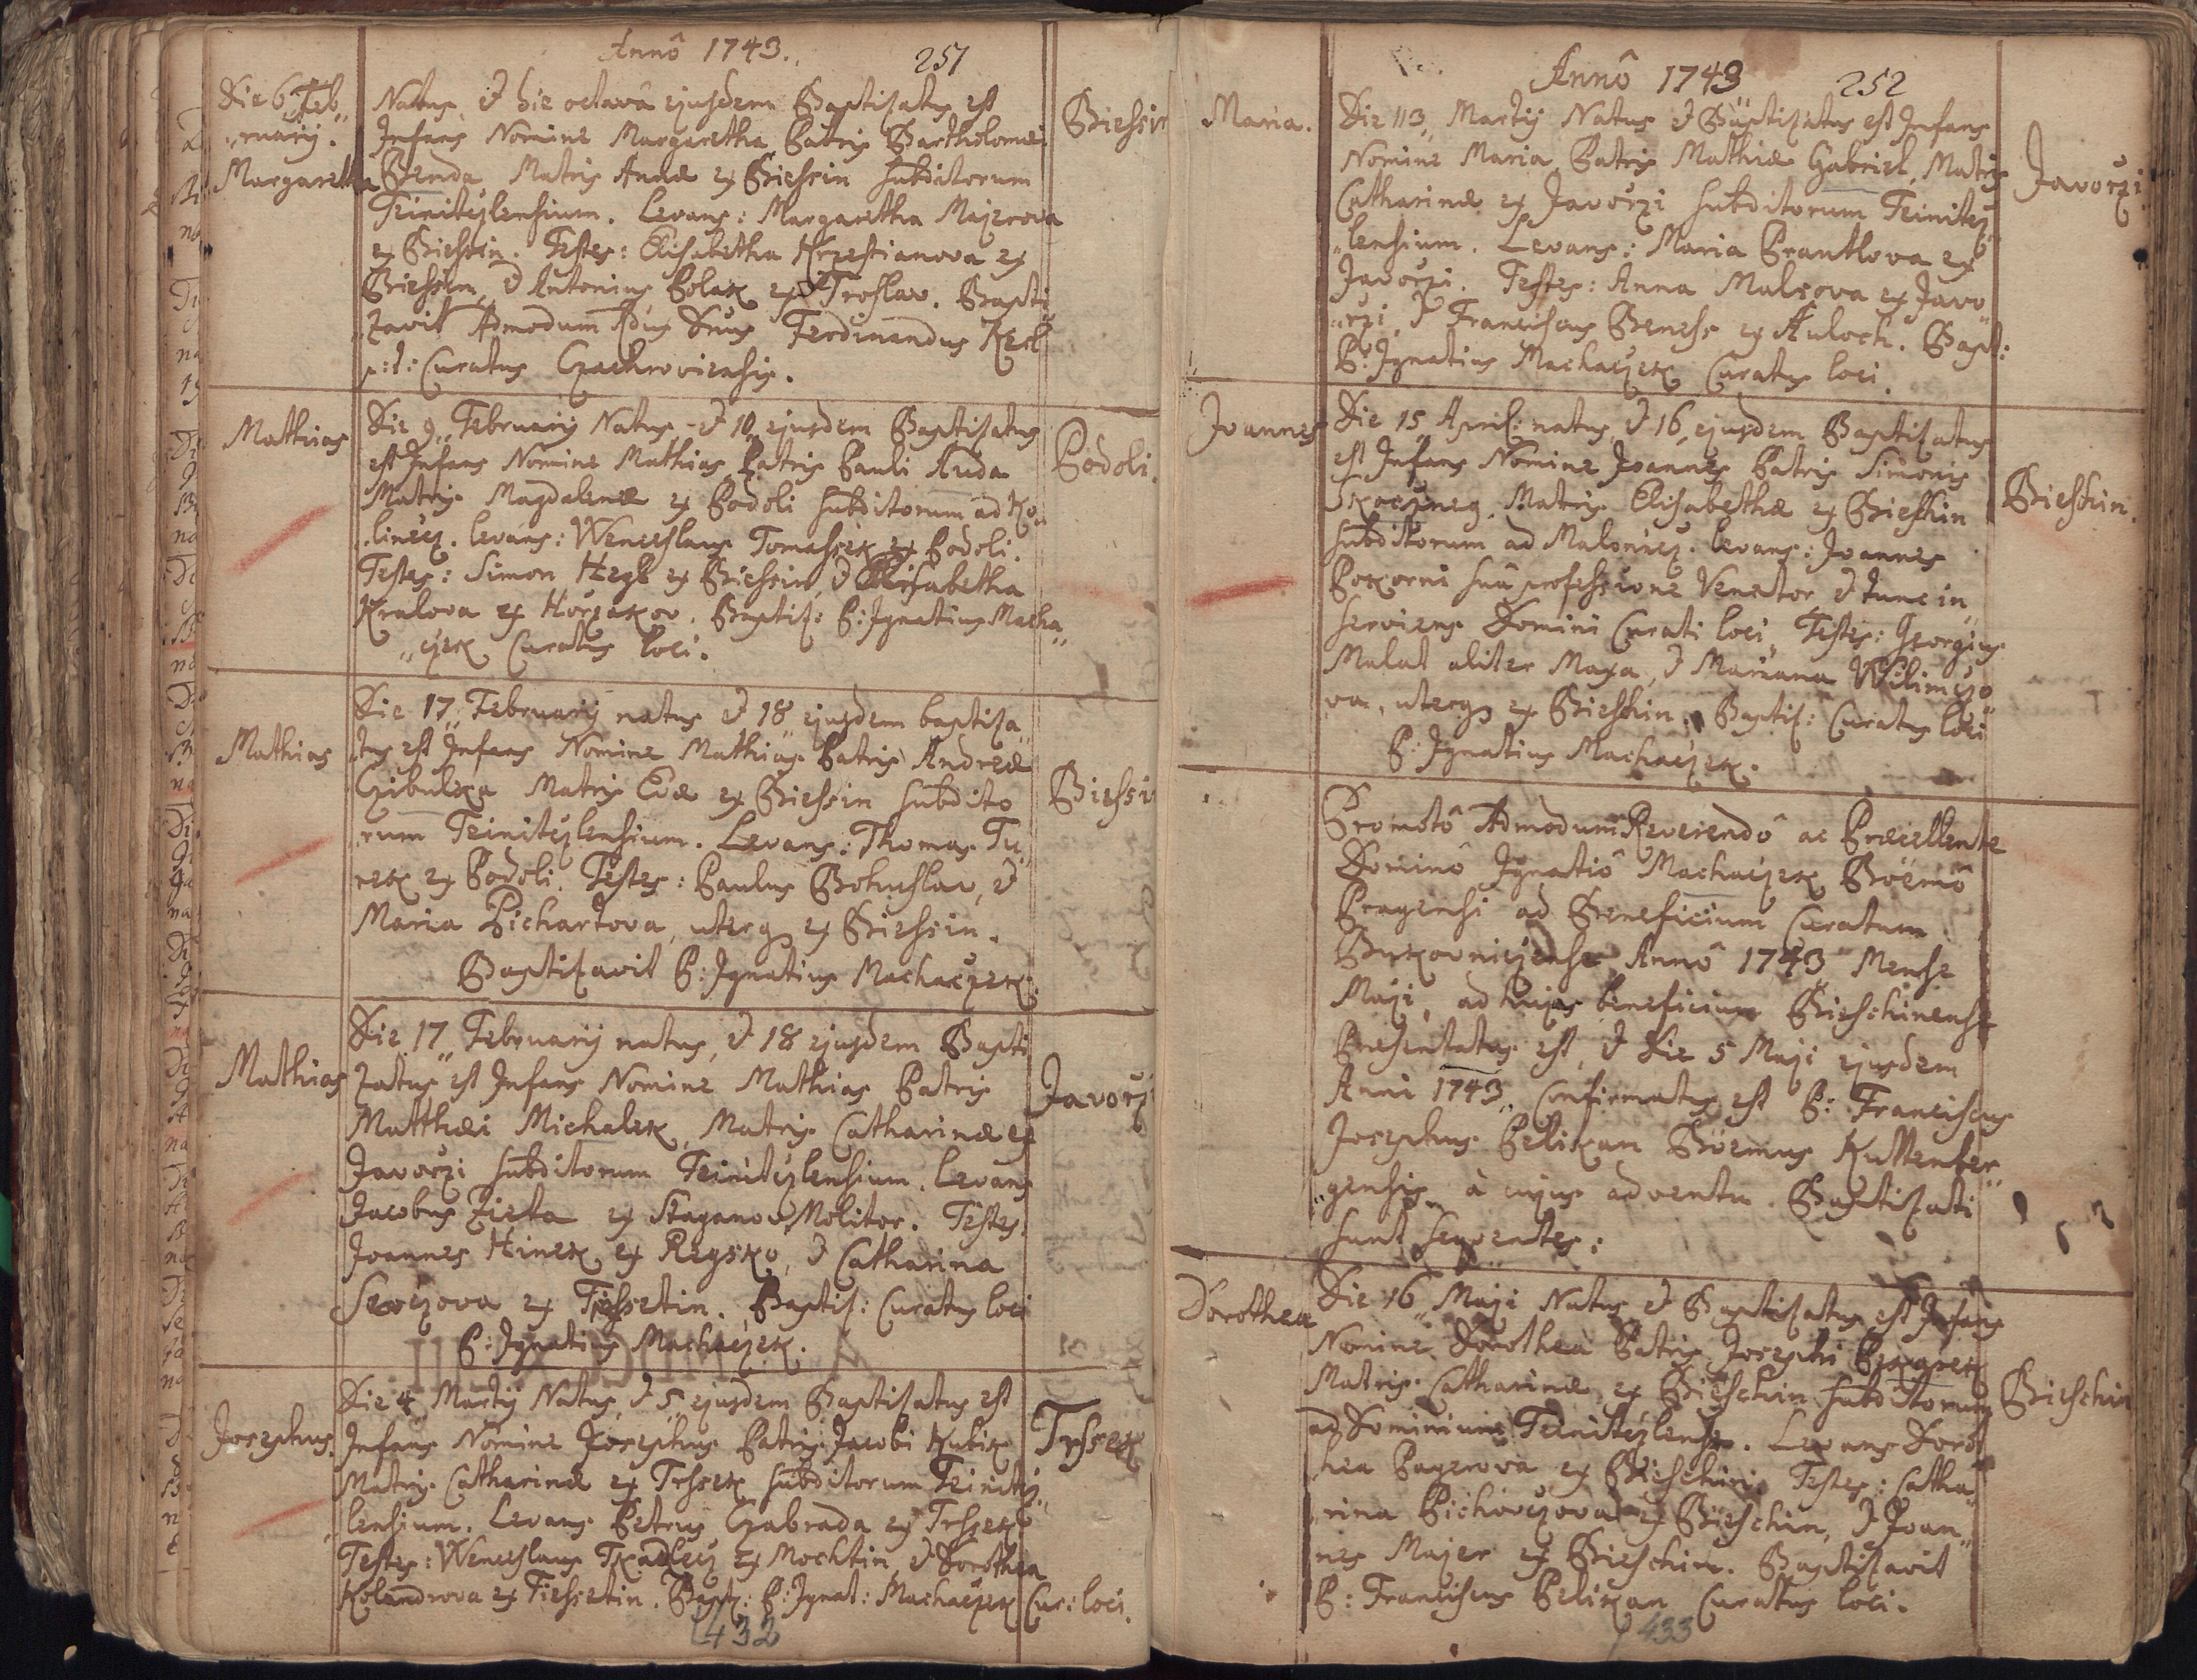 Annô 1743.
251
Die 6 Feb
ruarij.
Margaretha
Natus, et die octavâ ejusdem Baptisatus est
Infans Nomine Margaretha Patris Bartholomæi
Benda, Matris Annæ ex Biessin subditorum
Teinitzlensium. Levans: Margaretha Majerova
ex Biessin. Testes: Elisabetha Krzestianova ex
Biessin, et Antonius Polak ex Troslav. Bapti
zavit Admodum Rdus Dnus Ferdinandus Kecl
p:t: Curatus Czachroviensis.
Biessin
Mathias
Die 9 Februarij Natus et 10 ejusdem Baptisatus
est Infans Nomine Mathias Patris Pauli Auda
Matris Magdalenæ ex Podoli subditorum ad Ko
linecz. Levans: Wenceslaus Tomassek ex Podoli.
Testes: Simon Hegl ex Biessin, et Elisabetha
Kralova ex Horzakov. Baptis: P: Ignatius Macha
czek Curatus loci.
Podoli.
Mathias
Die 17 Februarij natus et 18 ejusdem baptisa
tus est Infans Nomine Mathias Patris Andreæ
Czibulka Matris Evæ ex Biessin subdito
rum Teinitzlensium. Levans: Thomas Tu
rek ex Podoli. Testes: Paulus Bohuslav, et
Maria Pichartova, uterq ex Biessin.
Baptisavit P: Ignatius Machaczek.
Biessi
Mathias
Die 17 Februarij natus, et 18 ejusdem Bapti
zatus est Infans Nomine Mathias Patris
Matthæi Michalek, Matris Catharinæ ex
Javorzi subditorum Teinitzlensium. Levans
Jacobus Zieta ex Staganov Molitor. Testes:
Joannes Hinek ex Regsko, et Catharina
Sevczova ex Tiessetin. Baptis: Curatus loci
P: Ignatius Machaczek.
Javorz
Josephus.
Die 4 Martij Natus, et 5 ejusdem Baptisatus est
Infans Nomine Josephus Patris Jacobi Kubik
Matris Catharinæ ex Trssek subditorum Teinitz
lensium. Levans Petrus Czabrada ex Trssek
Testes: Wenceslaus Tkadlecz ex Mochtin, et Dorothea
Kolandrova ex Tiessetin. Bapt: P: Ignat: Machaczek Cur: loci.
Trssek
432
Annô 1743
252
Maria.
Die 13 Martij Natus et Baptisatus est Infans
Nomine Maria Patris Mathiæ Gabriel, Matris
Catharinæ ex Javorzi subditorum Teinitz
lensium. Levans: Maria Prantlova ex
Javorzi. Testes: Anna Malcova ex Javo
rzi, et Franciscus Beness ex Auloch. Bapt:
P: Ignatius Machaczek Curatus loci.
Javorzi.
Joannes
Die 15 April: natus, et 16 ejusdem Baptisatus
est Infans Nomine Joannes Patris Simonis
Skoczneg. Matris Elisabethæ ex Bieschin
subditorum ad Malonicz. Levans: Joannes
Pokorni suâ professione Venator et tunc in
serviens Domini Curati loci, Testes: Georgius
Malat aliter Maxa, et Mariana Wilimczo
va, uterq ex Bieschin. Baptis: Curatus loci
P: Ignatius Machaczek.
Bieschin.
Promotô Admodum Reverendô ac Præcellente
Dominô Ignatiô Machaczek Böemô
Pragensi ad Beneficium Curatum
Bukovniczense, Annô 1743 Mense
Maji, ad hujas beneficium Bieschinense
Præsentatus est, et Die 5 Maji ejusdem
Anni 1743 Confirmatus est P: Franciscus
Josephus Pelikan Böemus Kuttenber
gensis, à cujus adventu Baptisati
sunt sequentes:
Dorothea
Die 16 Maji Natus et Baptisatus est Infans
Nomine Dorothea Patris Josephi
Matris Catharinæ ex Bieschin subditorum
ad Dominium Teinitzlense. Levans Doro
thea Bayerova ex Bieschin. Testes: Catha
rina Pichovczova ex Bieschin, et Joan
nes Majer ex Bieschin. Baptisavit
P: Franciscus Pelikan Curatus loci.
Bieschin
433